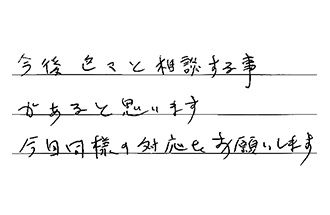 今後色々と相談する事
があると思います
今回同様の対応をお願いします